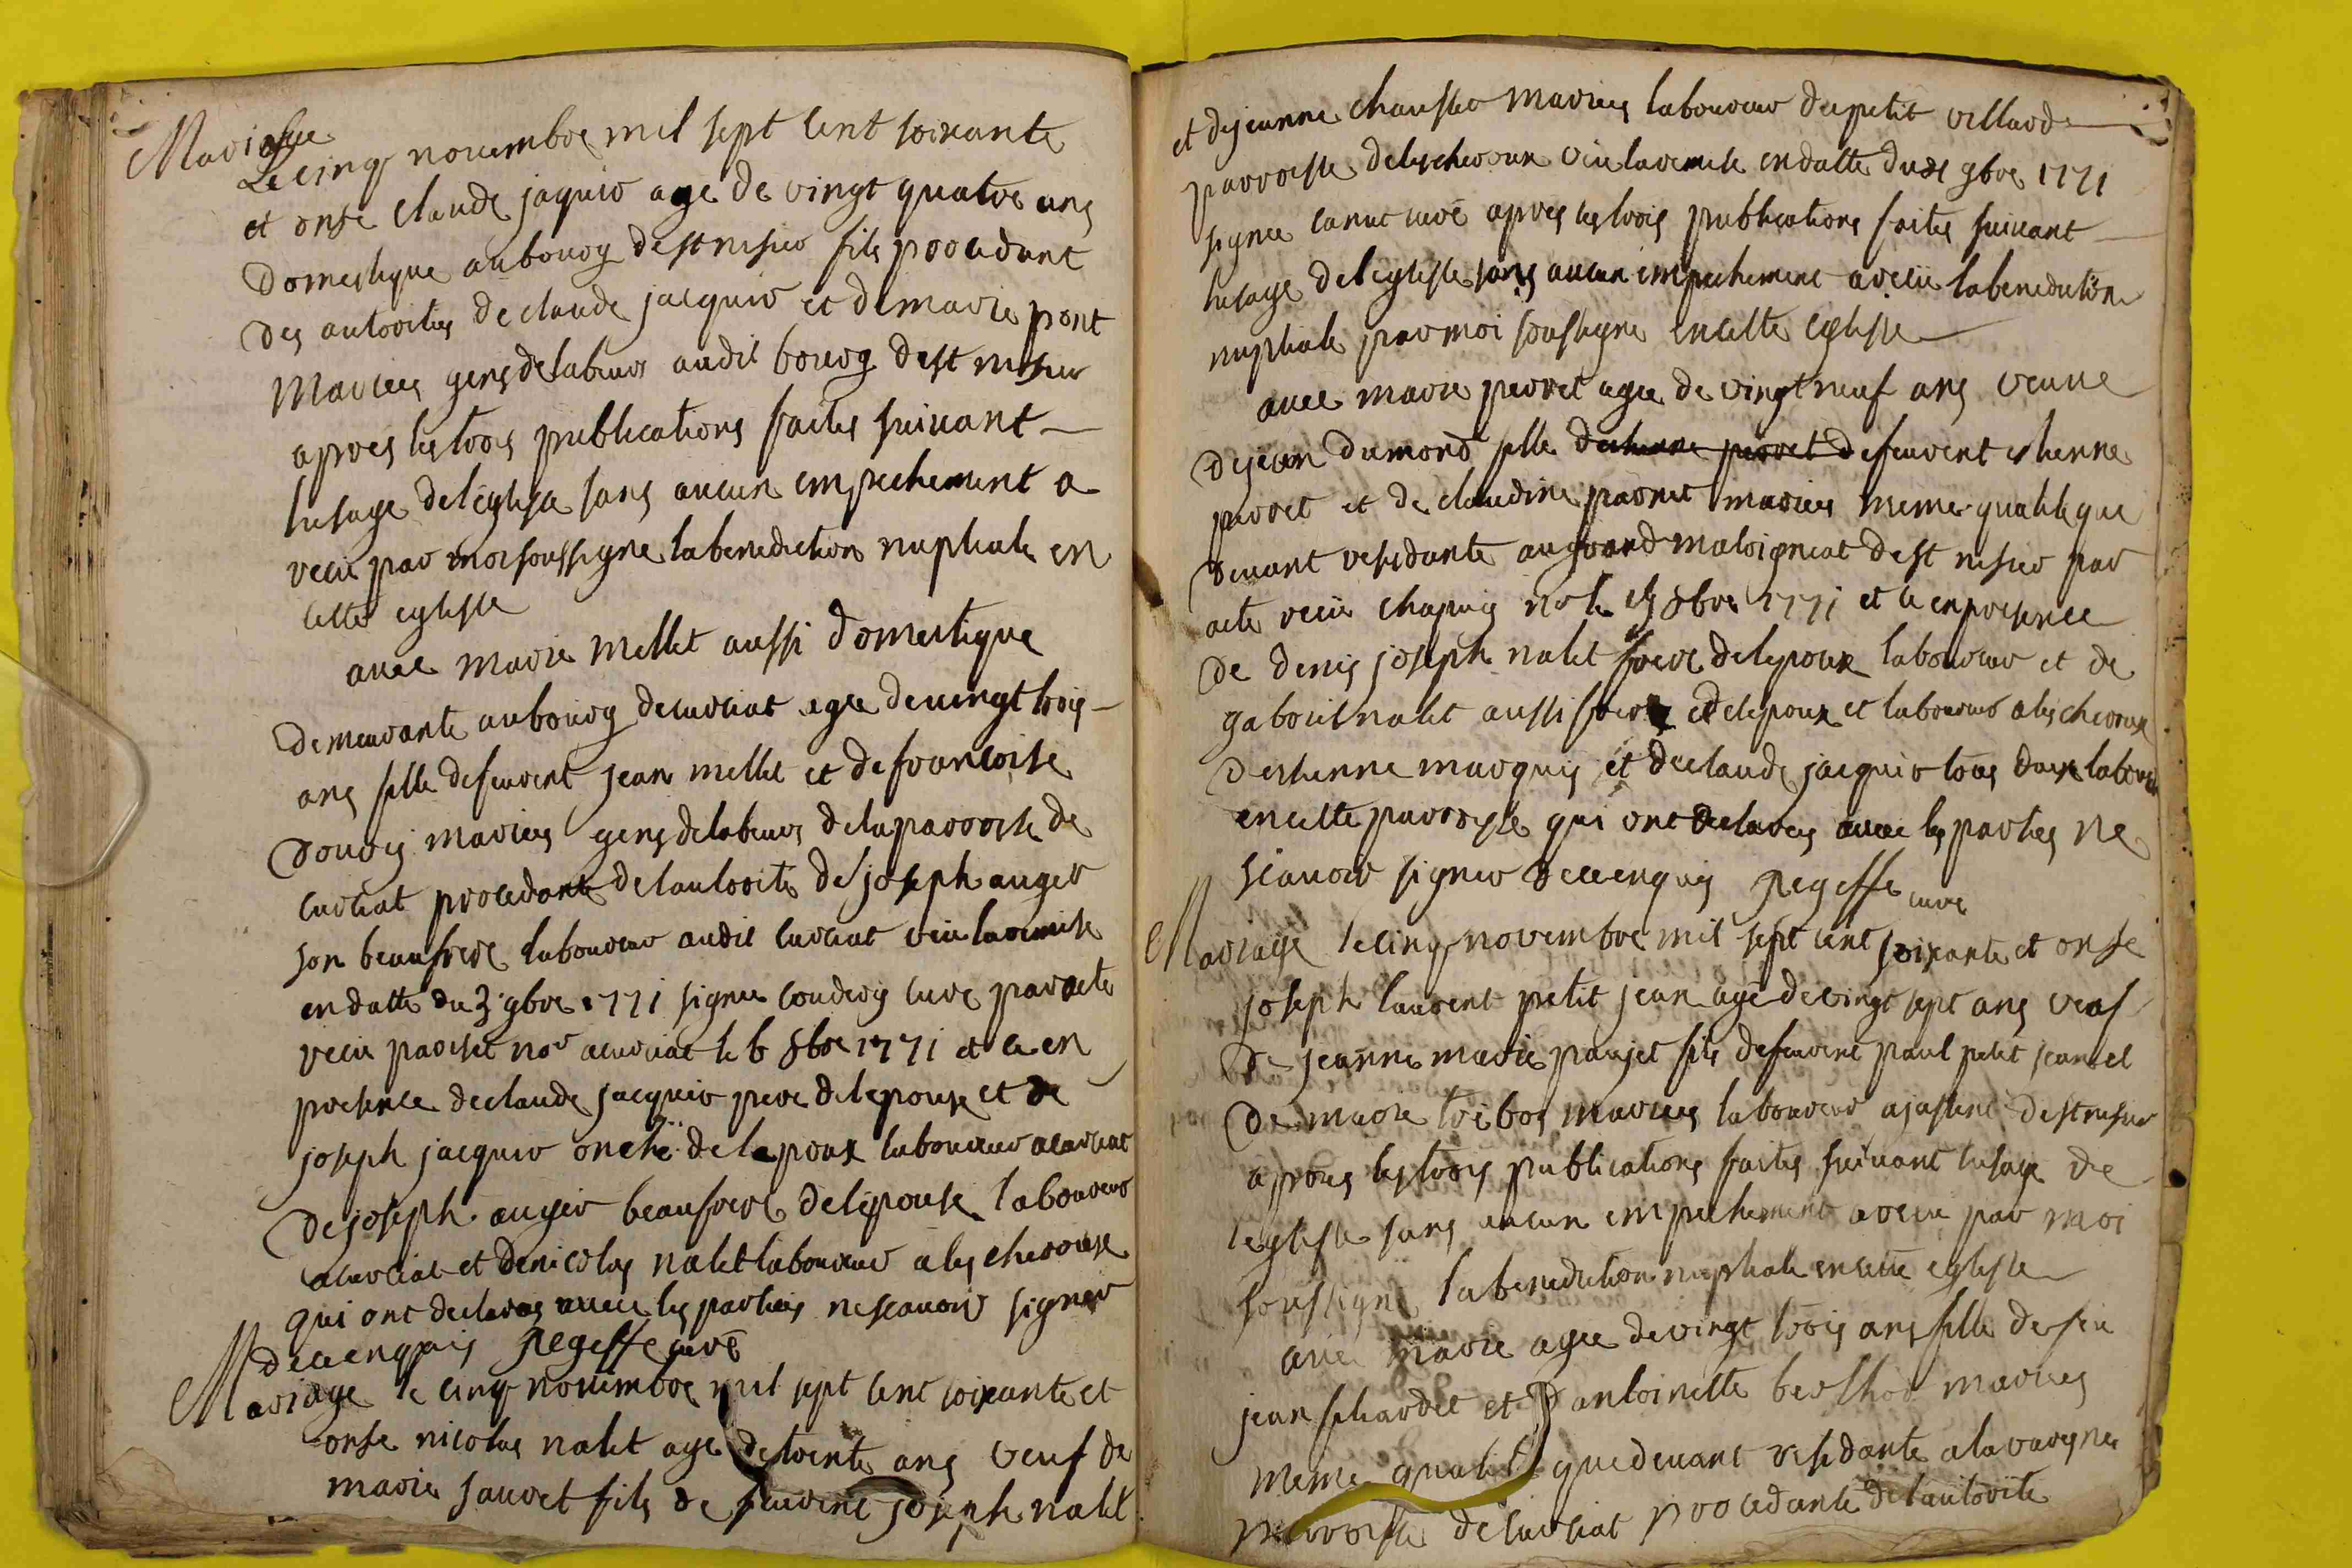 Mariage
Le cinq novembre mil sept cent soixante
et onse claude jaquir age de vingt quatre ans
domestique au bourg de st nisier fils procedant
des autorites de claude jacquir et de marie pont
Maries gens de labeur audit bourg de st nisier
apres les trois publications faites suivant
lusage de leglise sans aucun empechement a
recu par moi soussigne la benediction nuptiale en
cette eglisse
avec marie mellet aussi domestique
demeurante au bourg de curciat agee de vingt trois
ans fille defeurent jean mellet et de francoise
douvis maries gens de labeur de la parroisse de
curciat procedante de lautorite de joseph auger
son beaufrere laboureur audit curciat veu la remise
en datte du 3 9bre 1771 signee coudery cure par acte
recu pariset nor a curciat le 6 8bre 1771 et ce en
presence de claude jacquir pere de lepoux et de
joseph jacquir oncle de lepoux laboureur a curciat
de joseph auger beaufrere de lepouse laboureur
a curciat et de nicolas nalet laboureur a les cheroux
qui ont declares avec les parties ne scavoir signer
de ce enquis Regeffe curé
Mariage le cinq novembre mil sept cent soixante et
onse nicolas nalet age de trente ans veuf de
marie sauvet fils de feurent joseph nalet
et de jeanne chausser maries laboureur du petit villard
parroisse de lescheroux veu la remise en datte du 9bre 1771
signee canut curé apres les trois publications faites suivant
lusage de leglisse sans aucun empechement a recu la benediction
nuptiale par moi soussigne en cette eglisse
avec marie perret agee de vingt neuf ans veuve
de jean dumond fille destienne perret defeurent estienne
perret et de claudine parret maries meme qualite que
devant residante au grand maloigniat de st nisier par
acte recu chapuis nore 8bre 1771 et ce en presence
de denis joseph nalet frere de lepoux laboureur et de
gabriel nalet aussi frere de lepoux et laboureur a les cheroux
destienne marquis et de claude jacquir tous deux laboureur
en cette parroisse qui ont declares avec les parties ne
scavoir signer de ce enquis Regeffe cure
Mariage le cinq novembre mil sept cent soixante et onse
joseph laurent petit jean agé de vingt sept ans veuf
de jeanne marie paujet fils defeurent paul petit jean et
de marie trebos maries laboureur a de st nisier
apres les trois publications faites suivant lusage de
leglisse sans aucun empechement a recu par moi
soussigne la benediction nuptiale en cette eglisse
avec marie agee de vingt trois ans fille de feu
jean et dantoinette maries
meme qualite que devant residante a la varegne
parroisse de curciat procedante de lautorite